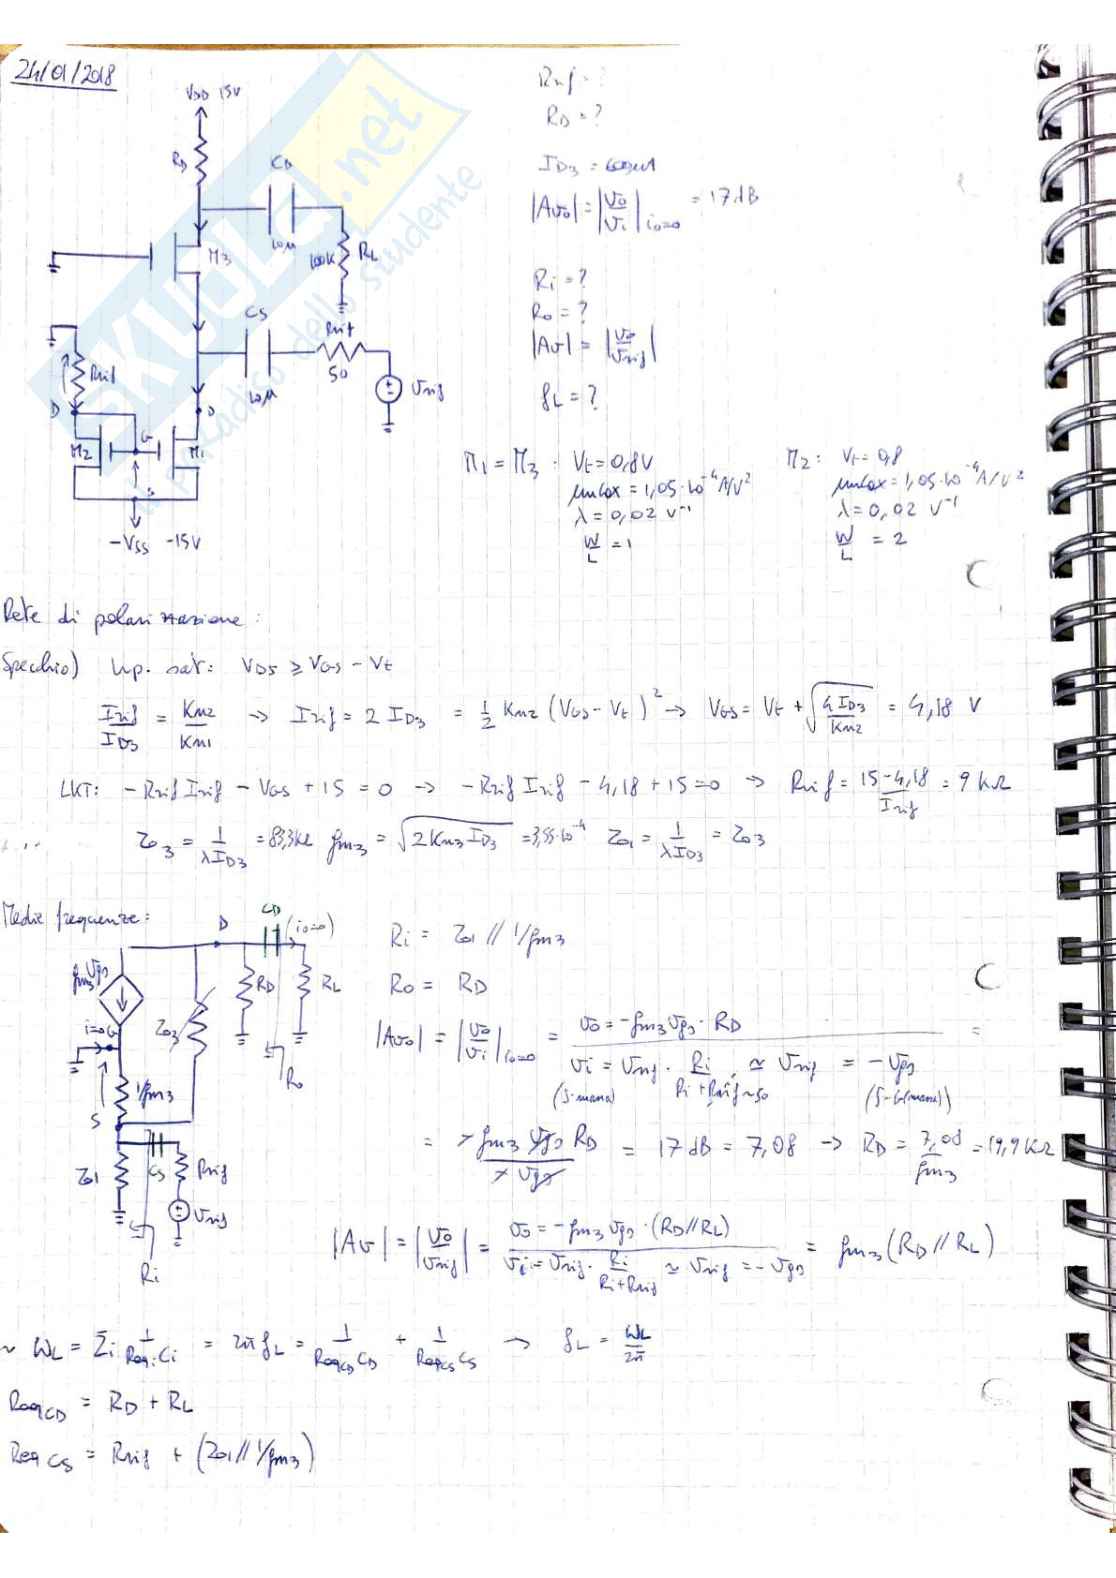 24/01/2018
VDD 15V
RD
CD
10µ
100K
RL
M3
CS
Rrif
50
10µ
vrif
Rrif
D
D
G
M2
M1
S
-VSS -15V
SKUOLA.net
paradiso dello studente
Rrif = ?
RD = ?
ID3 = 600µA
|Avo| = |vo/vi| io=0 = 17dB
Ri = ?
Ro = ?
|Av| = |vo/vrif|
fL = ?
M1 = M3 : Vt = 0,8V
µnCox = 1,05·10⁻⁴ A/V²
λ = 0,02 V⁻¹
W/L = 1
M2: Vt = 0,8
µnCox = 1,05·10⁻⁴ A/V²
λ = 0,02 V⁻¹
W/L = 2
Rete di polarizzazione:
Specchio) hp. sat: VDS ≥ VGS - Vt
Irif/ID3 = Kn2/Kn1 → Irif = 2 ID3 = 1/2 Kn2 (VGS - Vt)² → VGS = Vt + √(4 ID3/Kn2) = 4,18 V
LKT: - Rrif Irif - VGS + 15 = 0 → - Rrif Irif - 4,18 + 15 = 0 → Rrif = (15-4,18)/Irif = 9 kΩ
ro3 = 1/(λ ID3) = 83,3kΩ gm3 = √(2 Kn3 ID3) = 3,55·10⁻⁴ ro1 = 1/(λ ID3) = ro3
Medie frequenze:
gm3 vgs
i=0 G
1/gm3
S
ro3
D
CD
(io=0)
RD
RL
Ro
ro1
CS
Rrif
vrif
Ri
Ri = ro1 // 1/gm3
Ro = RD
|Avo| = |vo/vi| io=0 = (vo = -gm3 vgs · RD)/(vi = vrif · Ri/(Ri + Rrif) ≃ vrif = -vgs) =
(S-massa)
(S-G(massa))
= (-gm3 vgs RD)/(-vgs) = 17 dB = 7,08 → RD = 7,08/gm3 = 19,9 kΩ
|Av| = |vo/vrif| = (vo = -gm3 vgs · (RD//RL))/(vi = vrif · Ri/(Ri+Rrif) ≃ vrif = -vgs) = gm3 (RD // RL)
~ ωL = Σi 1/(Reqi Ci) = 2π fL = 1/(ReqCD CD) + 1/(ReqCS CS) → fL = ωL/2π
ReqCD = RD + RL
ReqCS = Rrif + (ro1 // 1/gm3)